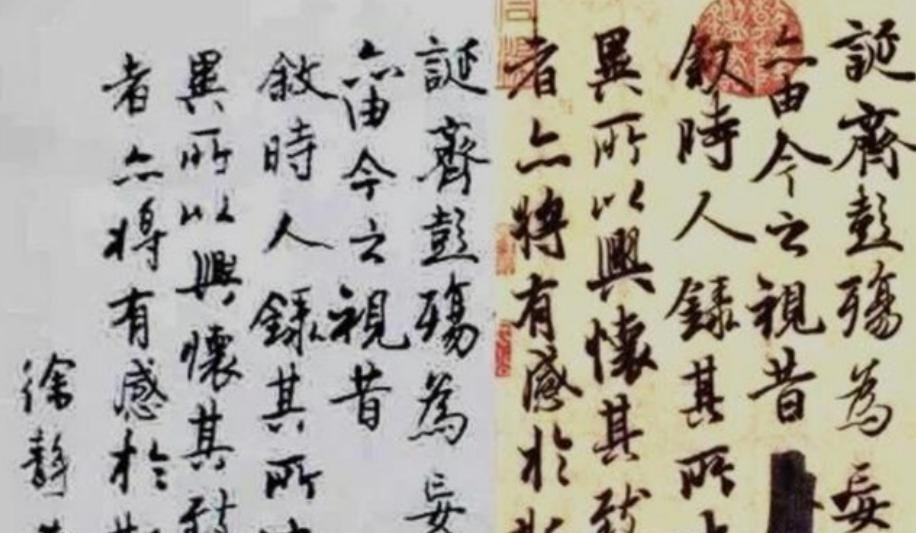 誕齊彭殤為妄
亦由今之視昔
叙時人錄其所
異所以興懷其致
者亦將有感於
誕齊彭殤為妄
亦由今之視昔
敘時人錄其所
異所以興懷其致
者亦將有感於
徐靜